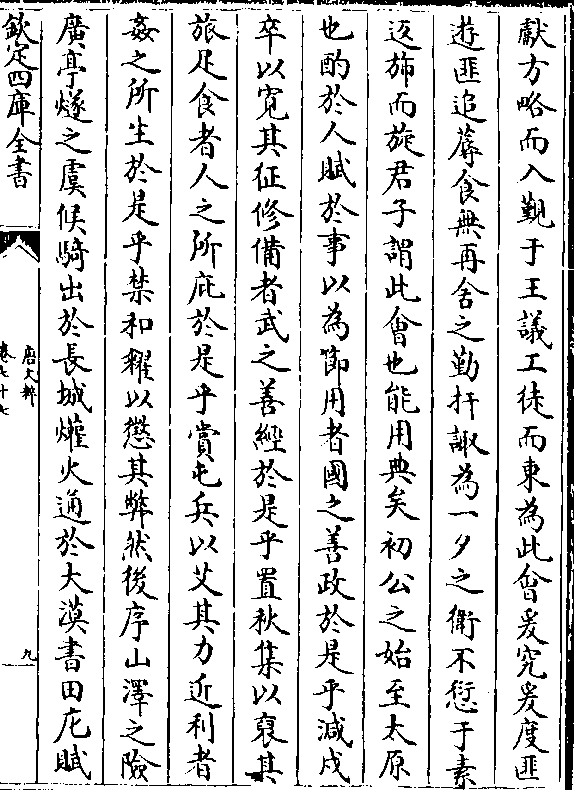 獻方略而入覲于王議工徒而東為此會爰究爰度匪
遊匪追蓐食無再舍之勤扞諏為一夕之衛不愆于素
返斾而旋君子謂此會也能用典矣初公之始至太原
也酌於人賦於事以為節用者國之善政於是乎減戍
卒以寛其征修備者武之善經於是乎置秋集以裒其
旅足食者人之所庇於是乎賞屯兵以艾其力近利者
姦之所生於是乎禁和糴以懲其弊然後序山澤之險
廣亭燧之虞候騎出於長城爟火通於大漠書田庀賦
欽定四庫全書
唐文粹
卷七十七
九